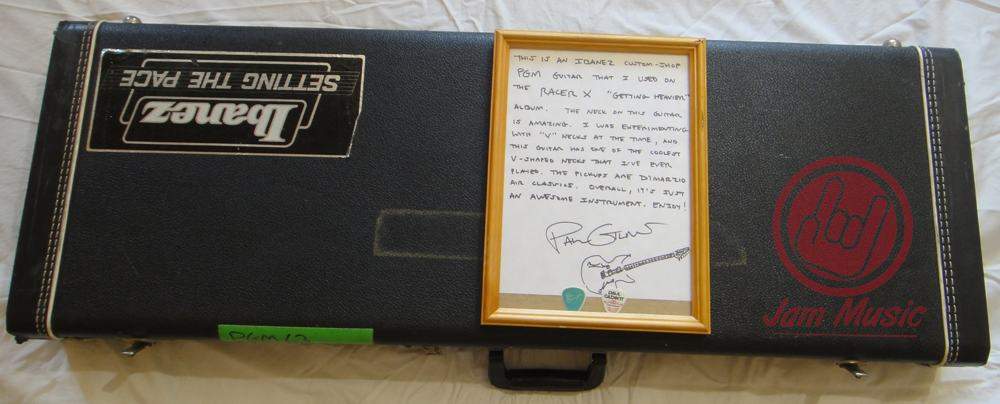 Ibanez
SETTING THE PACE
THIS IS AN IBANEZ CUSTOM-SHOP
PGM GUITAR THAT I USED ON
THE RACER X "GETTING HEAVIER"
ALBUM. THE NECK ON THIS GUITAR
IS AMAZING. I WAS EXPERIMENTING
WITH "V" NECKS AT THE TIME, AND
THIS GUITAR HAS ONE OF THE COOLEST
V-SHAPED NECKS THAT I'VE EVER
PLAYED. THE PICKUPS ARE DIMARZIO
AIR CLASSICS. OVERALL, IT'S JUST
AN AWESOME INSTRUMENT. ENJOY!
Paul Gilbert
PAUL
GILBERT
Jam Music